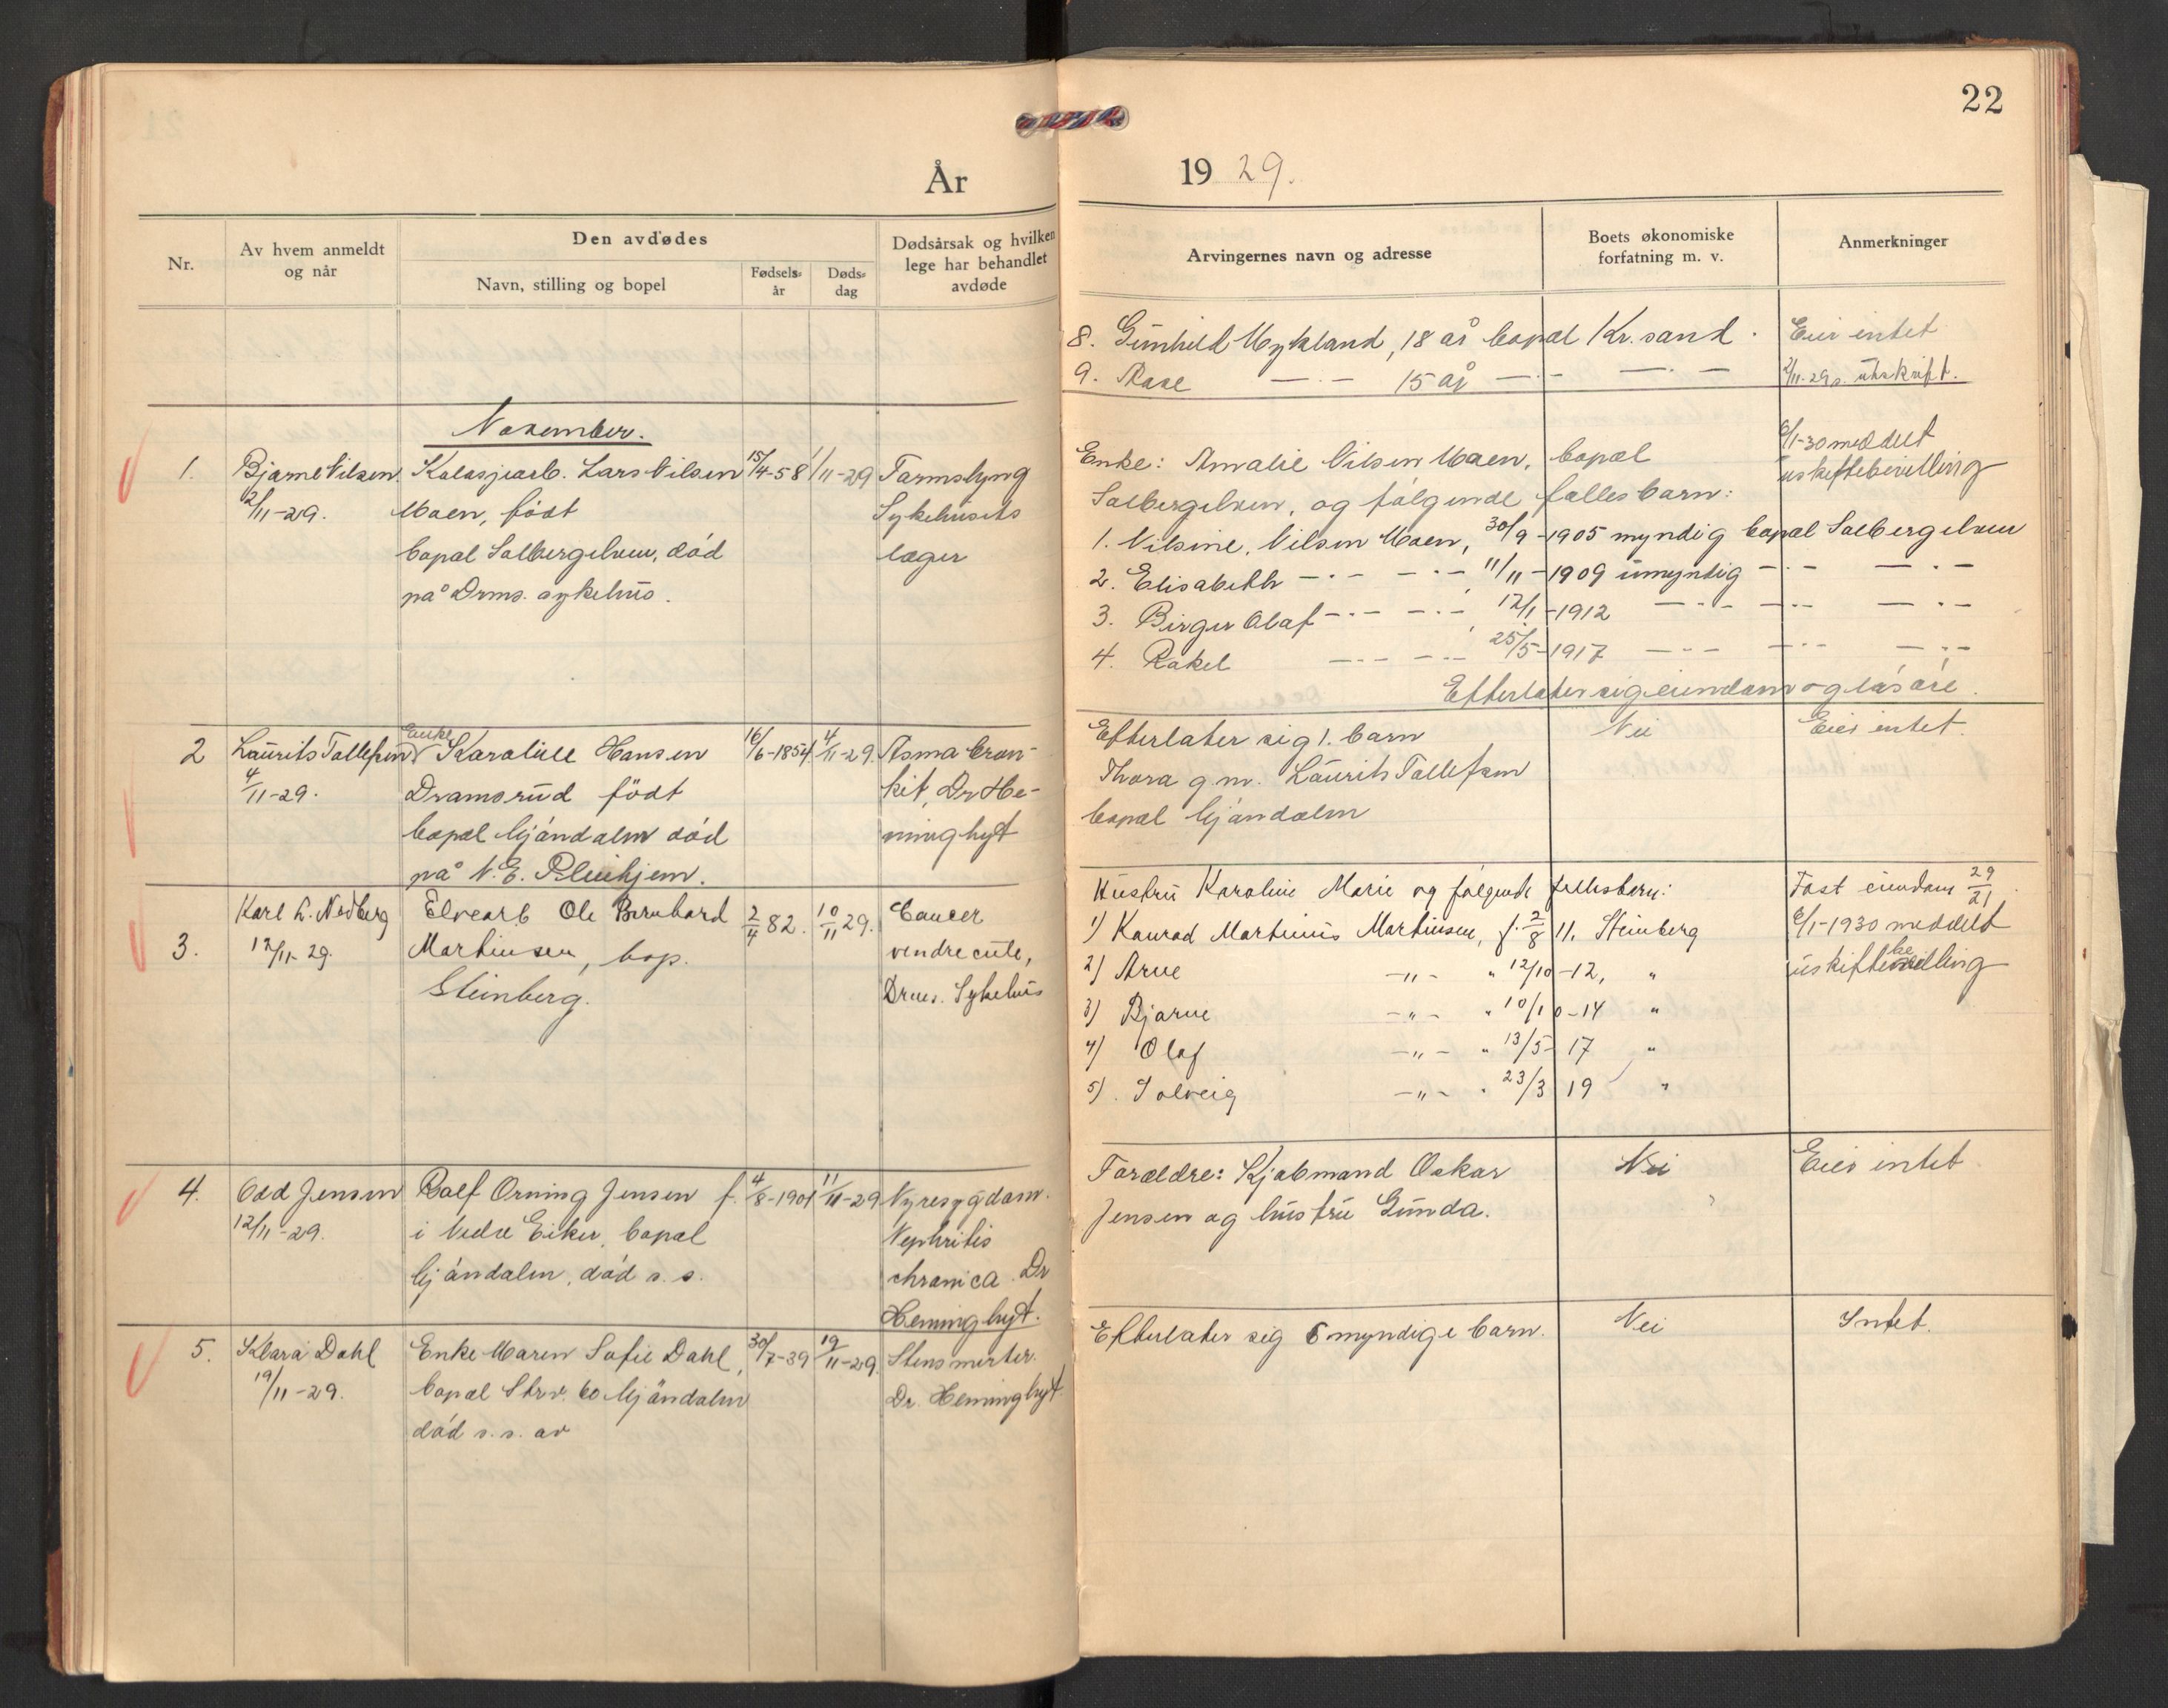 22
År 1929.
Nr.
Av hvem anmeldt
og når
Den avdødes
Navn, stilling og bopel
Fødsels-
år
Døds-
dag
Dødsårsak og hvilken
lege har behandlet
avdøde
Arvingernes navn og adresse
Boets økonomiske
forfatning m. v.
Anmerkninger
8. Gunhild Mykland, 18 år bopæl Kr.sand.
Eier intet
9. Aase —.— 15 år —.— —.—
utskrift.
November.
1.
Bjarne Nilsen
2/11-29.
Kalasjearb. Lars Nilsen
Moen, født
bopæl Solbergelven, død
på Drms. sykehus.
15/4-58
1/11-29
Tarmslyng
Sykehusets
læger
Enke: Amalie Nilsen Moen, bopæl
Solbergelven, og følgende fælles barn:
1. Nilsine, Nilsen Moen, 30/9-1905 myndig bopæl Solbergelven
2. Elisabeth —.— —.— 11/11-1909 umyndig —.— —.—
3. Birger Olaf —.— —.— 12/1-1912 —.— —.— —.—
4. Rakel —.— —.— 25/5-1917 —.— —.— —.—
Efterlater sig eiendom og løsøre.
6/1-30 meddelt
uskiftebevilling
2
Laurits Tollefsen
4/11-29.
Enke
Karoline Hansen
Dramsrud født
bopæl Mjøndalen død
på N.E. Pleiehjem.
16/6-1854
4/11-29.
Asma bron-
kit, Dr He-
minghyt
Efterlater sig 1. barn
Thora g.m. Laurits Tollefsen
bopæl Mjøndalen
Nei
Eier intet.
3.
Karl L. Nedberg
12/11-29.
Elvearb Ole Bernhard
Martinsen, bop.
Steinberg.
2/4 82.
10/11 29.
Cancer
vendrecule,
Drms. Sykehus
Hustru Karoline Marie og følgende fellesbarn:
1) Konrad Martinius Martinsen, f. 2/8 11. Steinberg
2) Arne —"— " 12/10-12, "
3) Bjarne —"— " 10/10-14 "
4) Olaf —"— " 13/5-17 "
5). Solveig —"— " 23/3 19 "
Fast eiendom 29/21.
6/1-1930 meddelt
uskiftebevilling
4.
Odd Jensen
12/11-29.
Rolf Orning Jensen f.
i Nedre Eiker, bopæl
Mjøndalen, død s. s.
4/8-1901
11/11-29
Nyresygdom.
Nephritis
chronica. Dr
Heminghyt.
Forældre: Kjøbmand Oskar
Jensen og hustru Gunda.
Nei
Eier intet.
5.
Klara Dahl
19/11-29.
Enke Maren Sofie Dahl,
bopæl Strv. 60 Mjøndalen
død s. s. av
30/7-39
19/11-29.
Stensmerter.
Dr. Heminghyt.
Efterlater sig 6 myndige barn.
Nei
Intet.